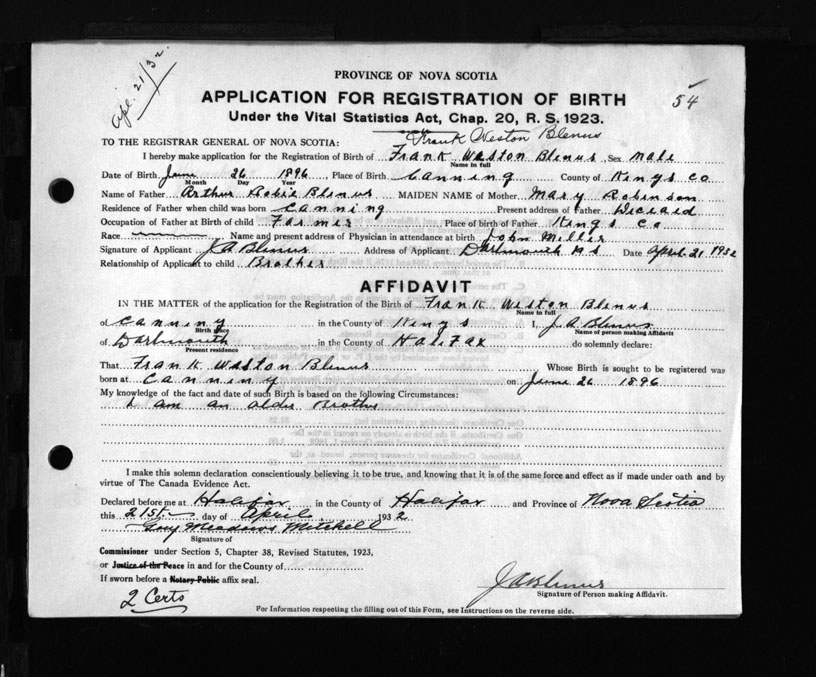 Apl. 21/32.
54
PROVINCE OF NOVA SCOTIA
APPLICATION FOR REGISTRATION OF BIRTH
Under the Vital Statistics Act, Chap. 20, R. S. 1923.
Frank Weston Blenus
TO THE REGISTRAR GENERAL OF NOVA SCOTIA:
I hereby make application for the Registration of Birth of Frank Weston Blenus Sex male
Name in full
Date of Birth June 26 1896 Place of Birth Canning County of Kings Co
Month Day Year
Name of Father Arthur Blenus MAIDEN NAME of Mother Mary Robinson
Residence of Father when child was born Canning Present address of Father Deceaid
Occupation of Father at Birth of child Farmer Place of birth of Father Kings Co
Race Name and present address of Physician in attendance at birth John Miller
Signature of Applicant J A Blenus Address of Applicant Dartmouth N S Date April 21 1932
Relationship of Applicant to child Brother
AFFIDAVIT
IN THE MATTER of the application for the Registration of the Birth of Frank Weston Blenus
Name in full
of Canning in the County of Kings I, J A Blenus
Birth place Name of person making Affidavit
of Dartmouth in the County of Halifax do solemnly declare:
Present residence
That Frank Weston Blenus Whose Birth is sought to be registered was
born at Canning on June 26 1896
My knowledge of the fact and date of such Birth is based on the following Circumstances:
I am an older Brother
I make this solemn declaration conscientiously believing it to be true, and knowing that it is of the same force and effect as if made under oath and by
virtue of The Canada Evidence Act.
Declared before me at Halifax in the County of Halifax and Province of Nova Scotia
this 21st. day of April 1932
Guy Meadows Mitchell
Signature of
Commissioner under Section 5, Chapter 38, Revised Statutes, 1923,
or Justice of the Peace in and for the County of
If sworn before a Notary Public affix seal.
J A Blenus
Signature of Person making Affidavit.
2 Certs
For Information respecting the filling out of this Form, see Instructions on the reverse side.